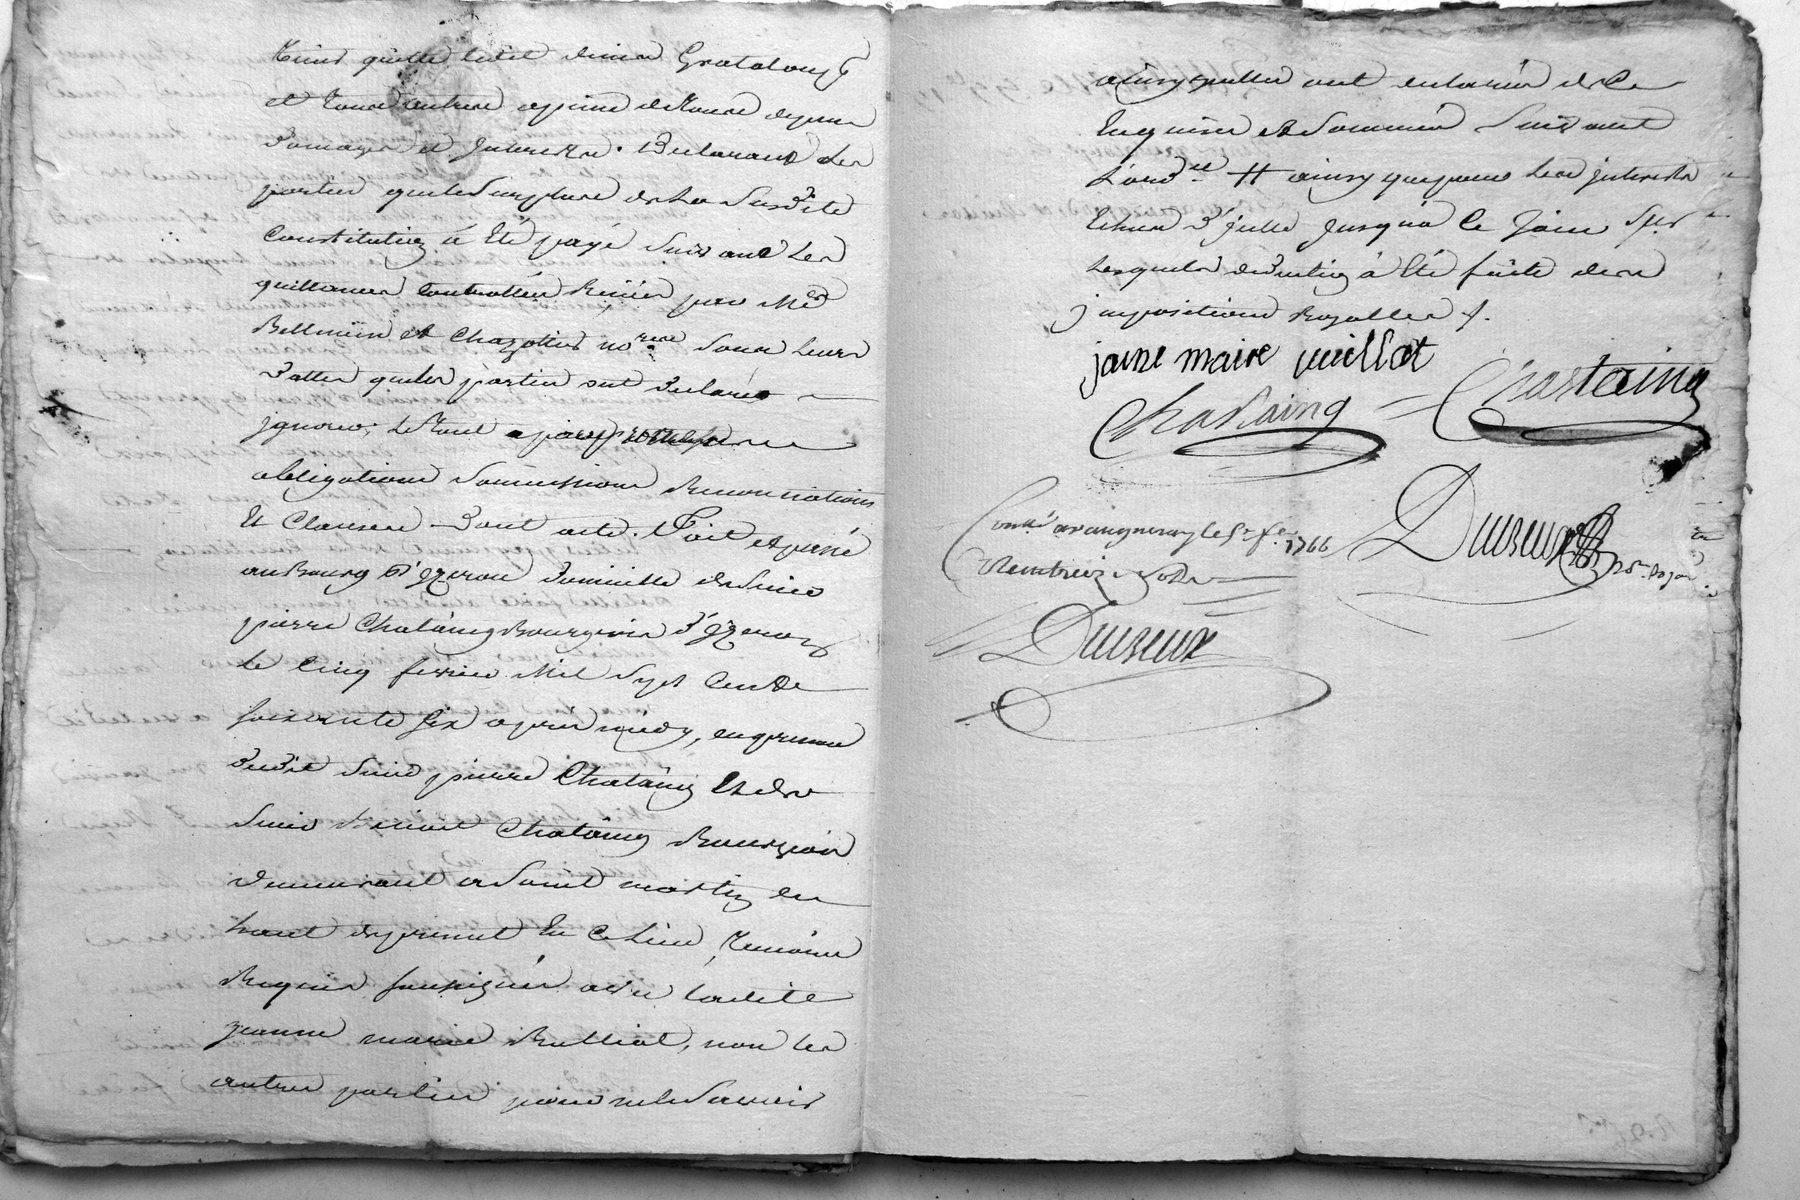 tenir quitte ledit Grataloup
et tous autres a peine de tous depens
domages et interests. Declarant les
parties que le surplus de la susdite
constitution a été payé suivant les
quittances controllées reçües par Mes
et Chazottes nores sous leurs
dattes que les parties ont declaré
ignorer, le tout a
obligations soumissions renonciations
et clauses dont acte. Fait et passé
au Bourg d'Izeron domicille de sieur
pierre Chataing Bourgeois d'Izeron
le cinq fevrier mil sept cent
soixante six apres midy, en presence
dudit sieur pierre Chataing et de
sieur Benoit Chataing Bourgeois
demeurant a Saint martin en
haut de present en ce lieu, temoins
Requis soussignés avec ladite
jeanne marie Rulliat, non les
autres parties pour ne le scavoir
ainsy qu'elles ont declaré de ce
enquises et sommées suivant
l'ordce # ainsy que pour les interests
echus d'jelle jusqu'à ce jour sur
lesquels deduction à été faite des
impositions Royalles.
jane marie
Chataing Chastaing
Conllé a vaugneray le 5e fer 1766
Duvieux
Duvieux